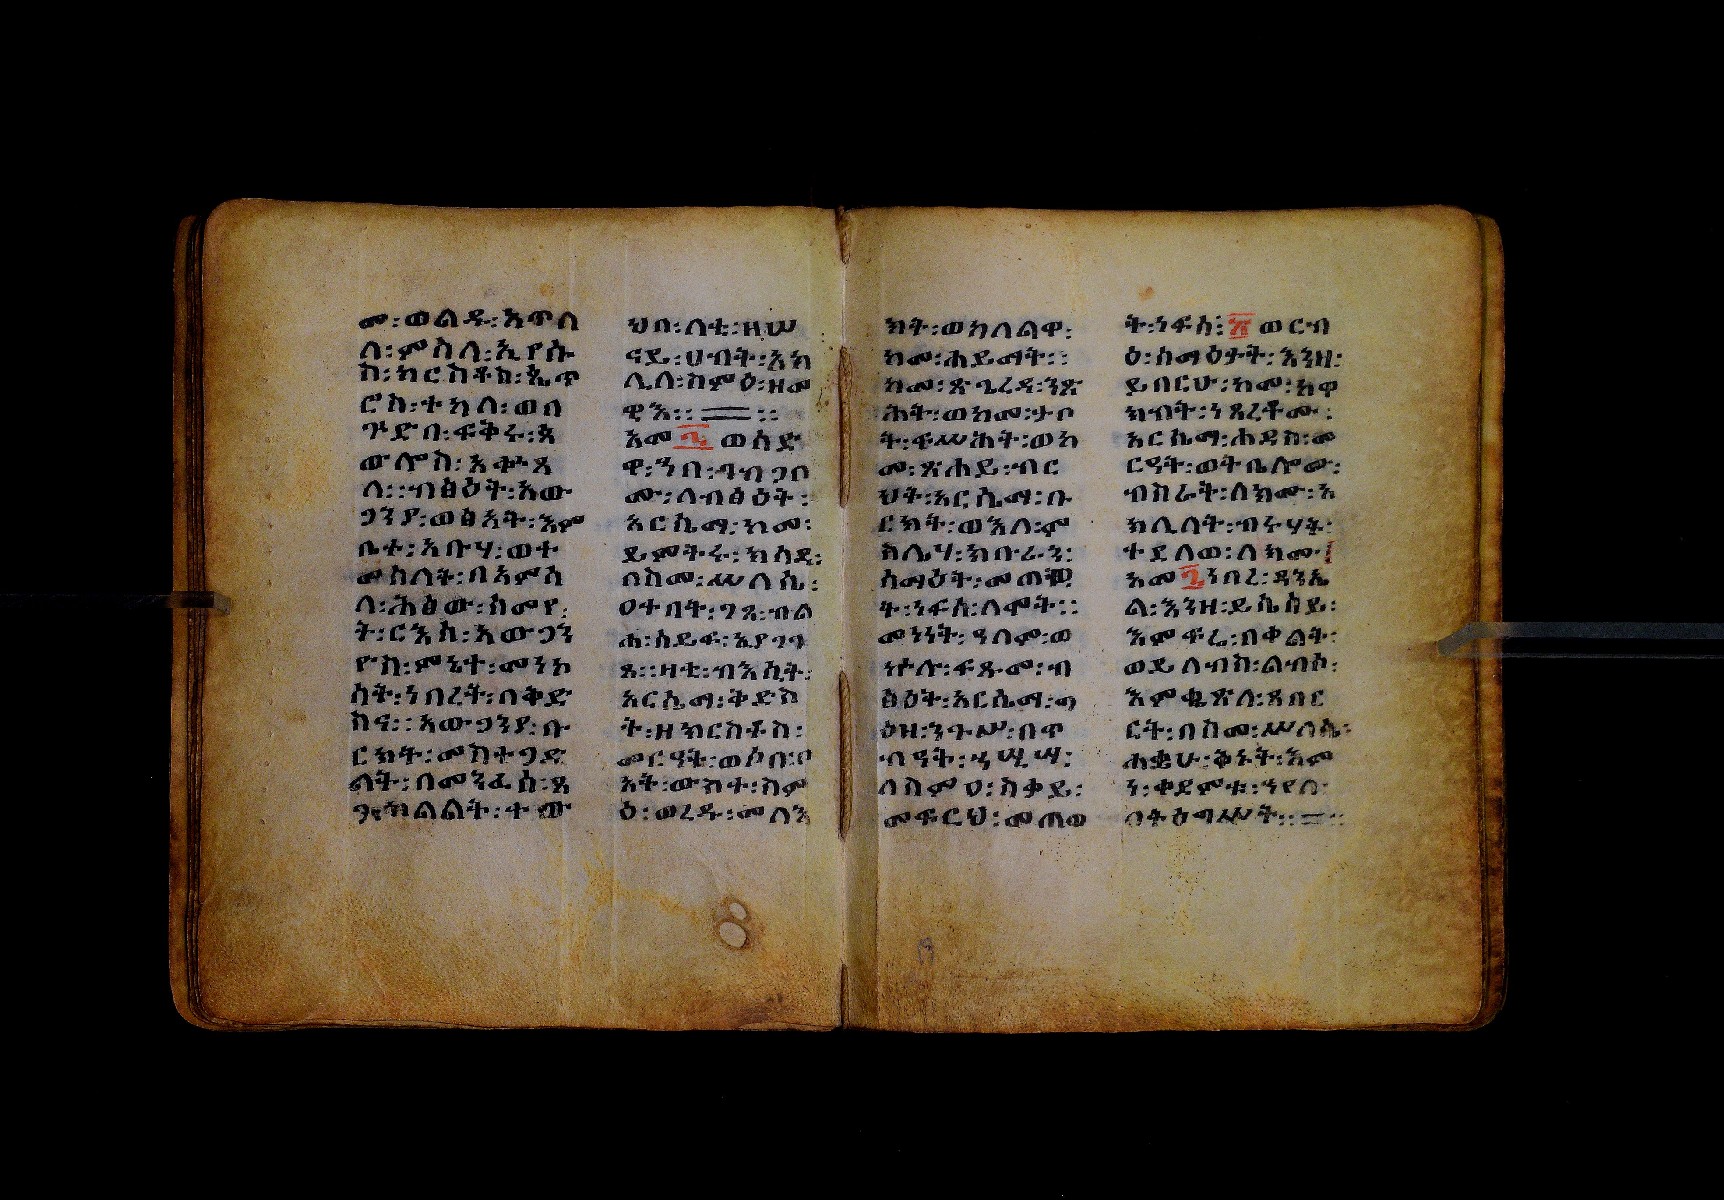 መ፡ወልዱ፡አጥበ
ለ፡ምስለ፡ኢየሱ
ስ፡ክርስቶስ፡ጴጥ
ሮስ፡ተካለ፡ወበ
ጕድበ፡ፍቅሩ፡ጳ
ውሎስ፡
ለ፡፡ብፅዕት፡አው
ጋንያ፡ወፅአት፡እም
ቤተ፡አቡሃ፡ወተ
መሰለት፡በአምሳ
ለ፡ሕፅው፡ከመየ፡
ት፡ርእስ፡አውጋን
ዮስ፡ምኔተ፡መነኮ
ሳት፡ነበረት፡በቅድ
ስና፡፡አውጋንያ፡ቡ
ርክት፡መስተጋድ
ልት፡በመንፈስ፡ጸ
ግ፡
ህበ፡ለቲ፡ዘሠ
ናይ፡ሀብት፡አክ
ሊለ፡ስምዕ፡ዘመ
ዊእ፡፡ ፡፡
አመ ወሰድ
ዋ፡ኀበ፡ዓብጋቦ
ሙ፡ለብፅዕት፡
አርሴማ፡ከመ፡
ይምትሩ፡ክሳዳ፡
በስመ፡ሥላሴ፡
ዐተበት፡ገጸ፡ብል
ሐ፡ሰይፍ፡
ጸ፡፡ዛቲ፡ብእሲት፡
አርሴማ፡ቅድስ
ት፡ዘክርስቶስ፡
መርዓት፡ወሶበ፡ቦ
አት፡ውስተ፡ስም
ዕ፡ወረዱ፡መላእ
ክት፡ወከለልዋ፡
ከመ፡ሐይማት፡፡
ከመ፡ጽጌረዳ፡ንጽ
ሕት፡ወከመ፡ታቦ
ት፡ፍሥሕት፡ወከ
መ፡ፀሐይ፡ብር
ህት፡አርሴማ፡ቡ
ርክት፡ወእለ፡ም
ስሌሃ፡ክቡራን፡
ሰማዕት፡መጠዋ
ት፡ነፍሰ፡ለሞት፡፡
መነነት፡ዓለም፡ወ
ኵሉ፡ፍጹመ፡ብ
ፅዕት፡አርሴማ፡ግ
ዕዘ፡ንጉሥ፡በጥ
ብዓት፡
ለስምዐ፡ሰቃይ፡
መፍርህ፡መጠወ
ት፡ነፍሰ፡ ወርብ
ዕ፡ሰማዕታት፡እንዘ፡
ይበርሁ፡ከመ፡ከዋ
ክብት፡ነጸረቶሙ፡
አርሴማ፡ሐዳስ፡መ
ርዓት፡ወትቤሎሙ፡
ብስራት፡ለክሙ፡አ
ክሊለት፡ብሩሃት፡
ተደለወ፡ለክሙ፡
አመ ነበረ፡ዳንኤ
ል፡እንዘ፡ይሴሰይ፡
እምፍሬ፡በቀልት፡
ወይለብስ፡ልብሰ፡
እምቈጽለ፡ጸበር
ርት፡በስመ፡ሥላሴ፡
ሐቋሁ፡ቅኑት፡እም
ን፡ቀደምቱ፡ኀየለ፡
በትዕግሥት፡፡